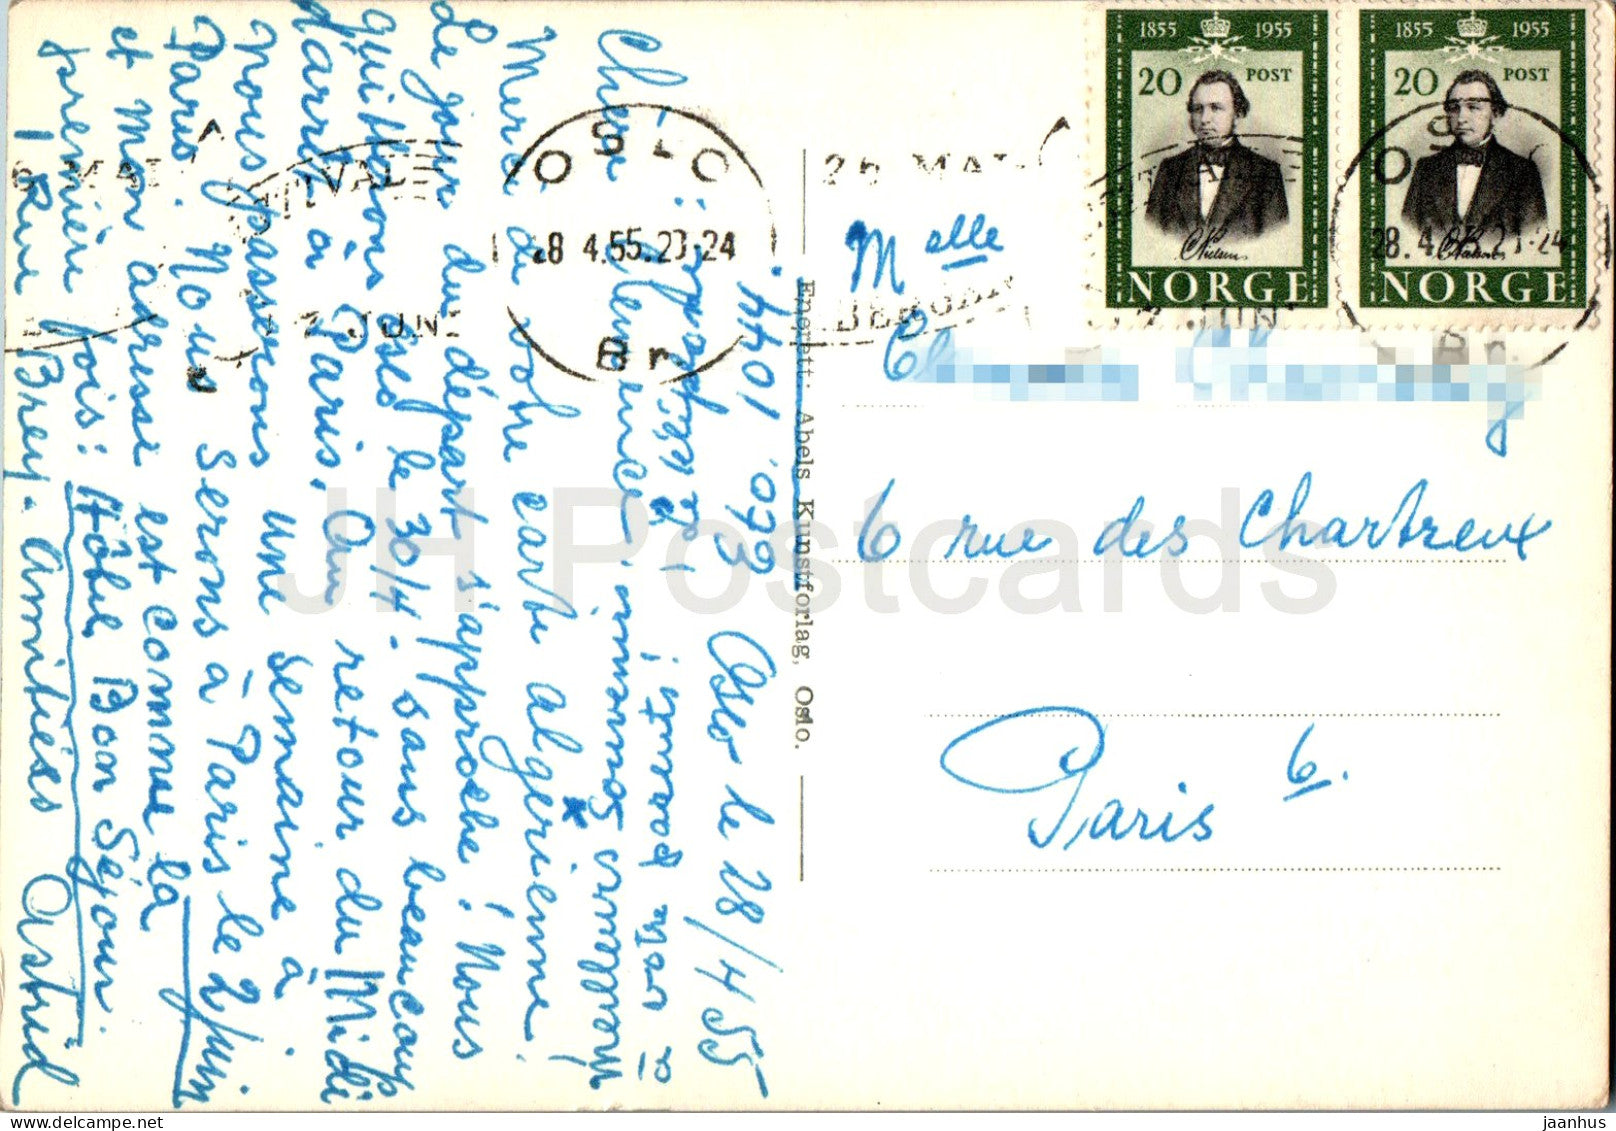 Oslo le 28/4 55
Chère Clémence,
Merci de votre carte algérienne.
Le jour du départ s'approche! Nous
quittons Oslo le 30/4 - sans beaucoup
d'arrêt à Paris. Au retour du Midi
nous passerons une semaine à
Paris. Nous serons à Paris le 2/juin
et mon adresse est comme la
première fois: Hôtel Bon Séjour.
1 Rue Brey. Amitiés Astrid
Enerett: Abels Kunstforlag, Oslo.
OSLO
28 4.55.23-24
Br.
26 MAI
BERGEN
2 JUNI
1855 1955
20 POST
NORGE
1855 1955
20 POST
NORGE
OSLO
Br.
Melle
6 rue des Chartreux
Paris 6.
JH Postcards
jaanhus